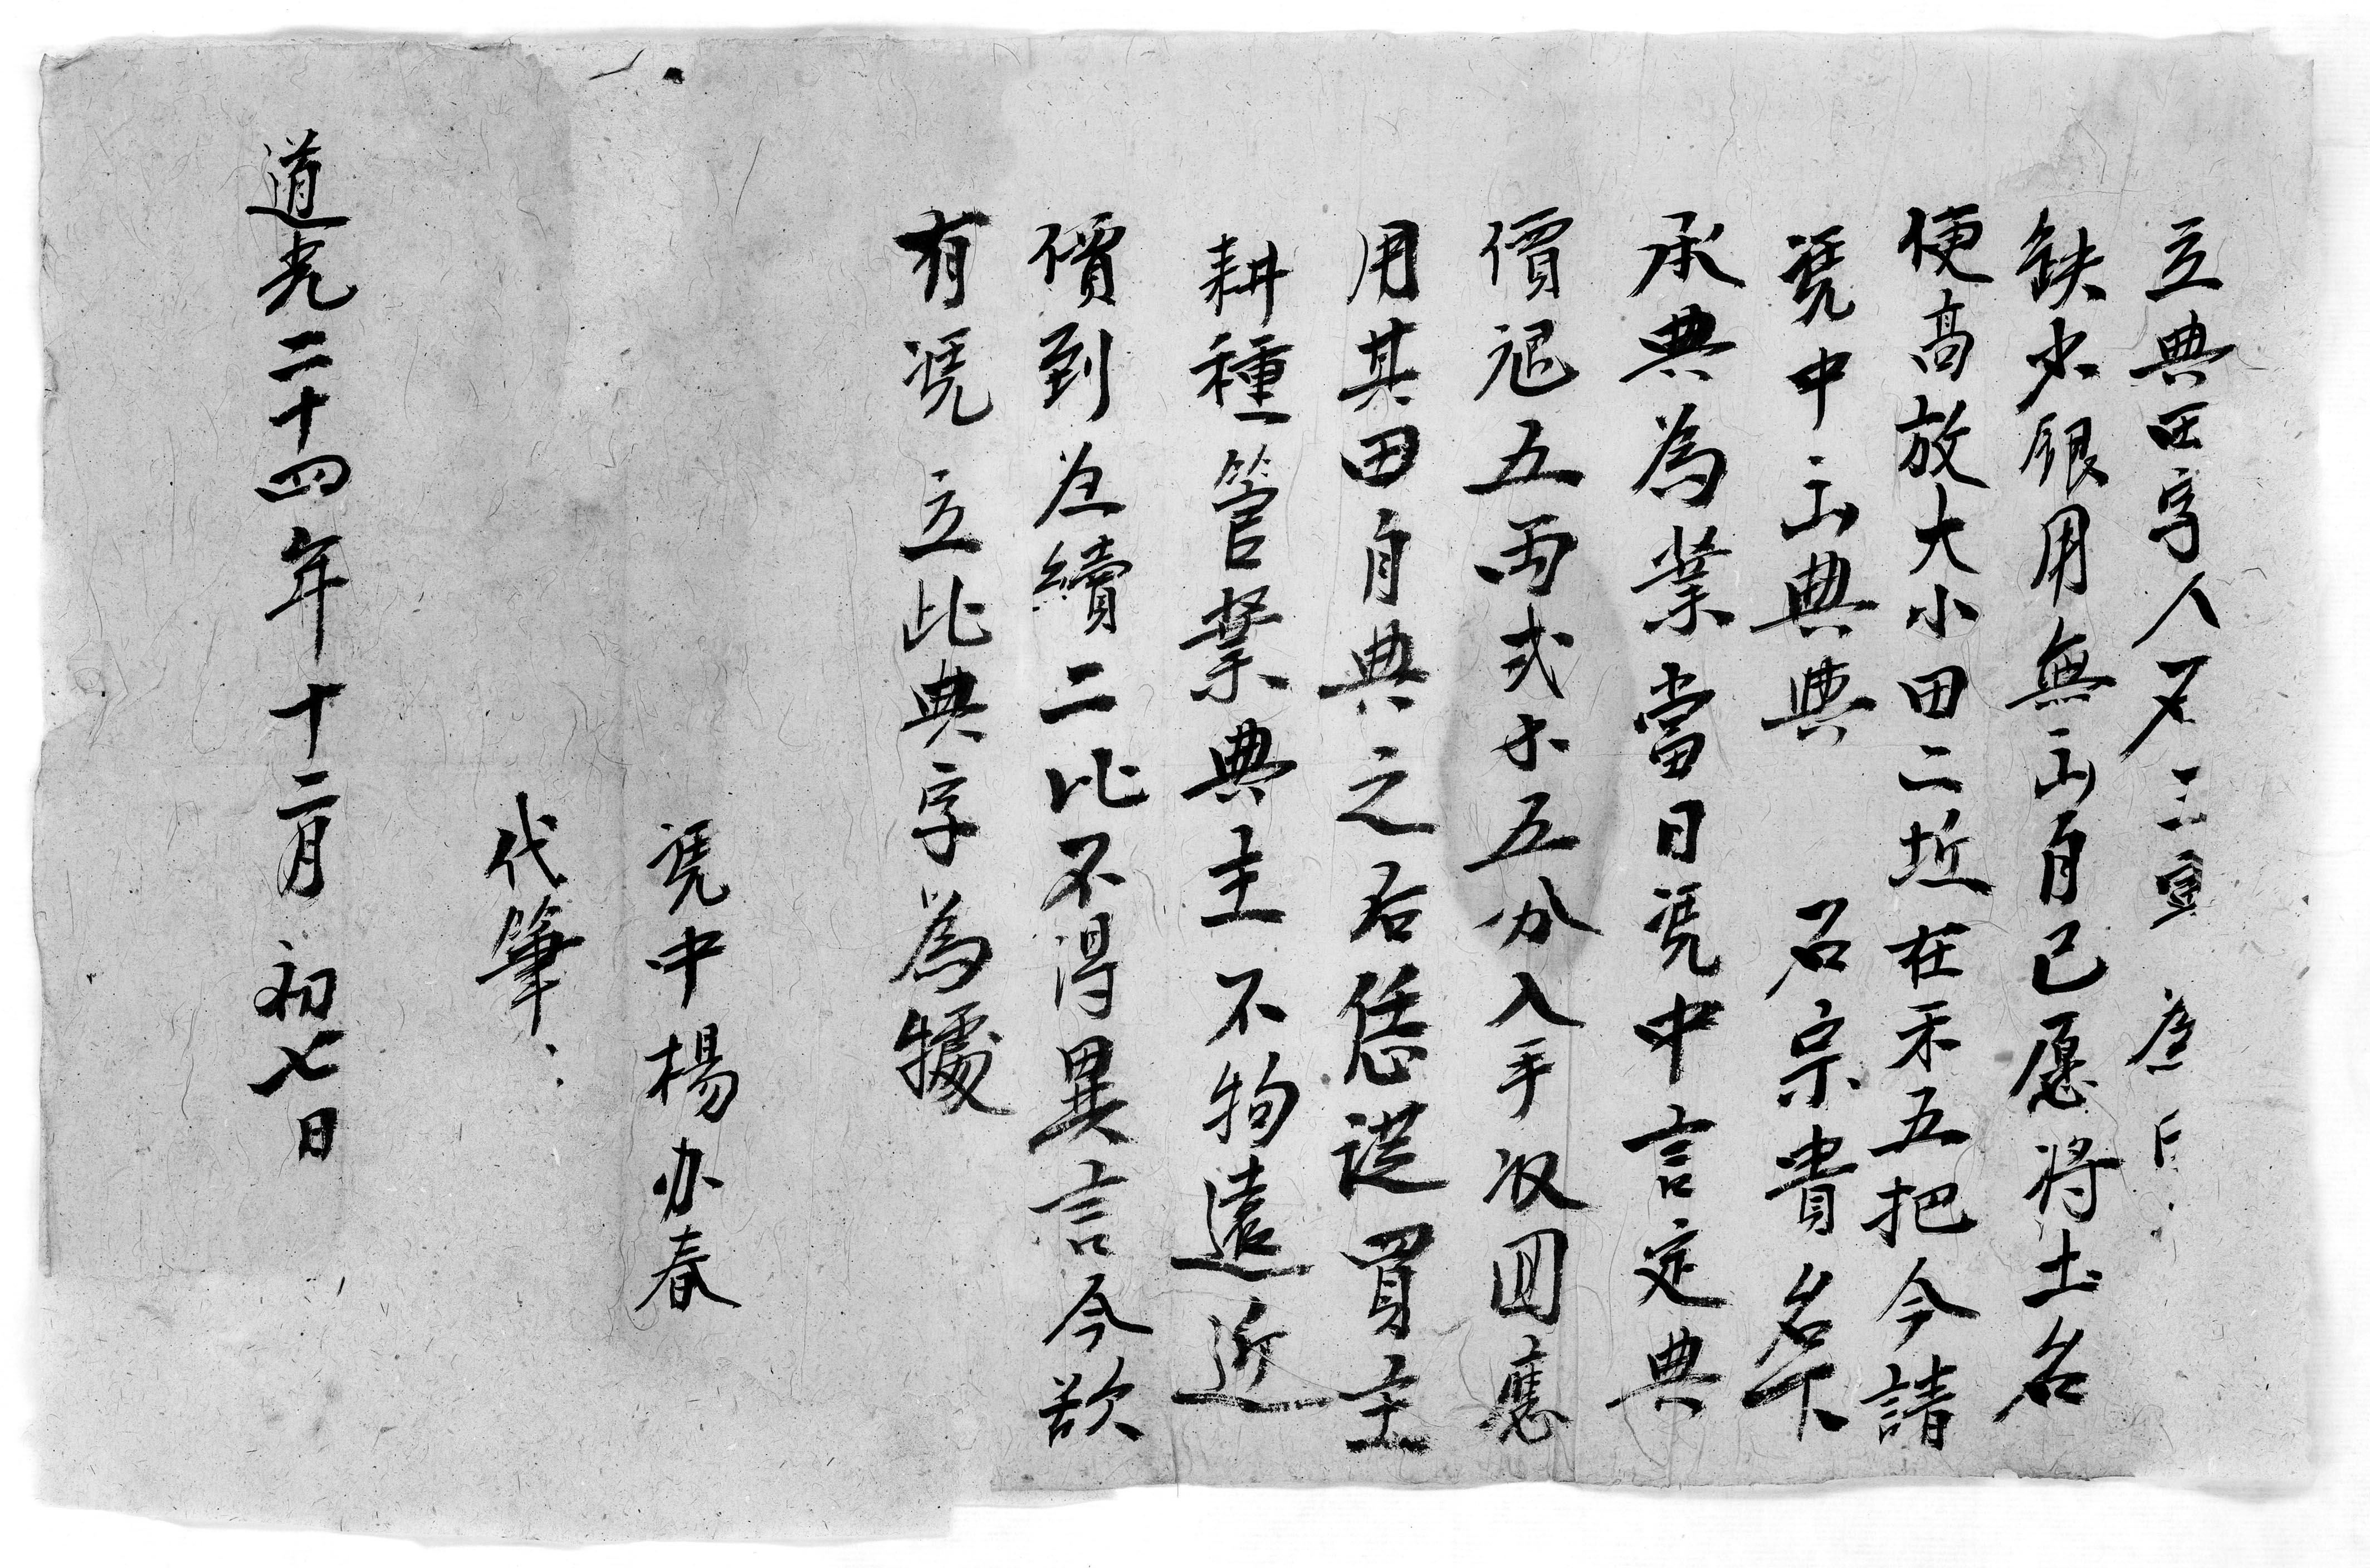 立典田字人 為因
缺少銀用無出自己愿将土名
便高放大小田二坵在禾五把今請
凴中出典典 石宗貴名下
承典為業當日凴中言定典
價艮五両弍卜五分入手収回應
用其田自典之右恁從買主
耕種管業典主不拘遠近
價到 續二比不得異言今欲
有凴立比典字為㨿
凴中楊办春
代筆
道光二十四年十二月初七日